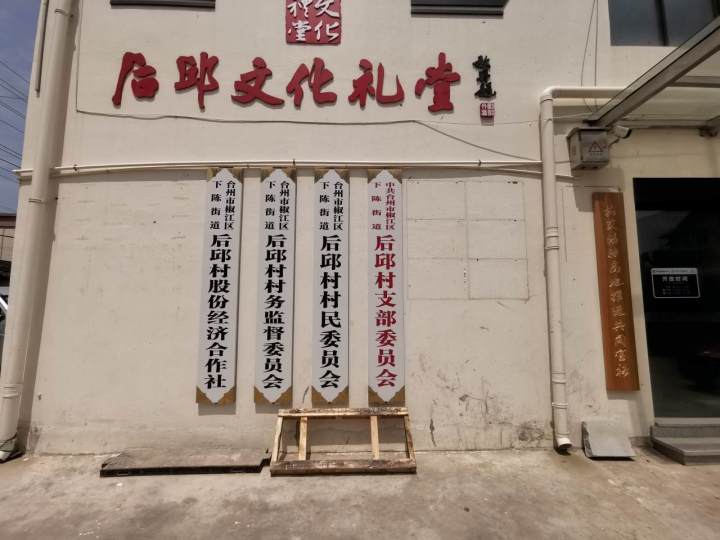 文化礼堂
后邱文化礼堂
台州市椒江区
下陈街道
后邱村股份经济合作社
台州市椒江区
下陈街道
后邱村村务监督委员会
台州市椒江区
下陈街道
后邱村村民委员会
中共台州市椒江区
下陈街道
后邱村支部委员会
开放时间